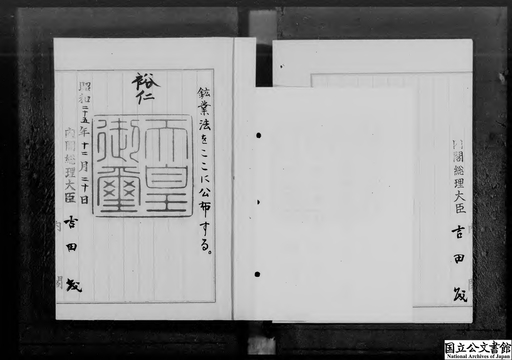 鉱業法をここに公布する。
裕仁
天皇御璽
昭和二十五年十二月二十日
内閣総理大臣 吉田茂
内閣
内閣総理大臣 吉田茂
内
国立公文書館
National Archives of Japan